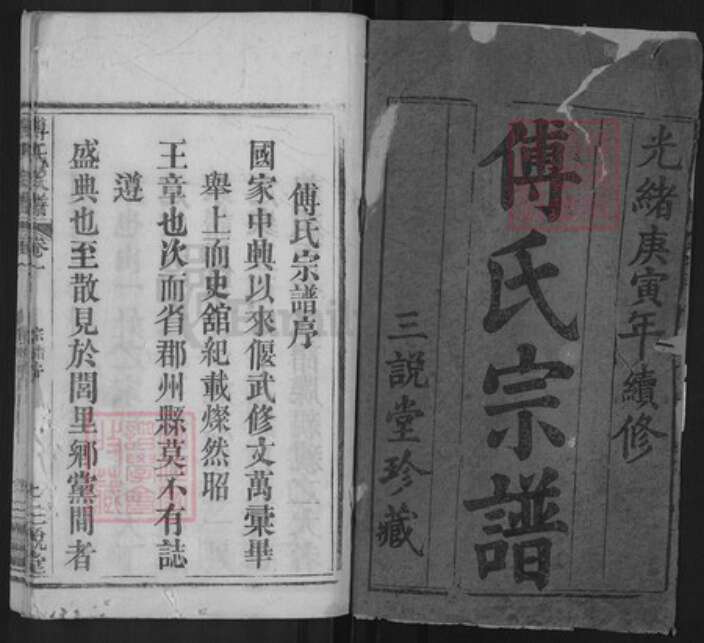 光緒庚寅年續修
傅氏宗譜
三説堂珍藏
傅氏宗譜序
國家中興以來偃武修文萬彙畢
舉上而史舘紀載燦然昭
王章也次而省郡州縣莫不有誌
遵
盛典也至散見於閭里鄉黨間者
傅氏宗譜
卷一
宗譜序
三說堂